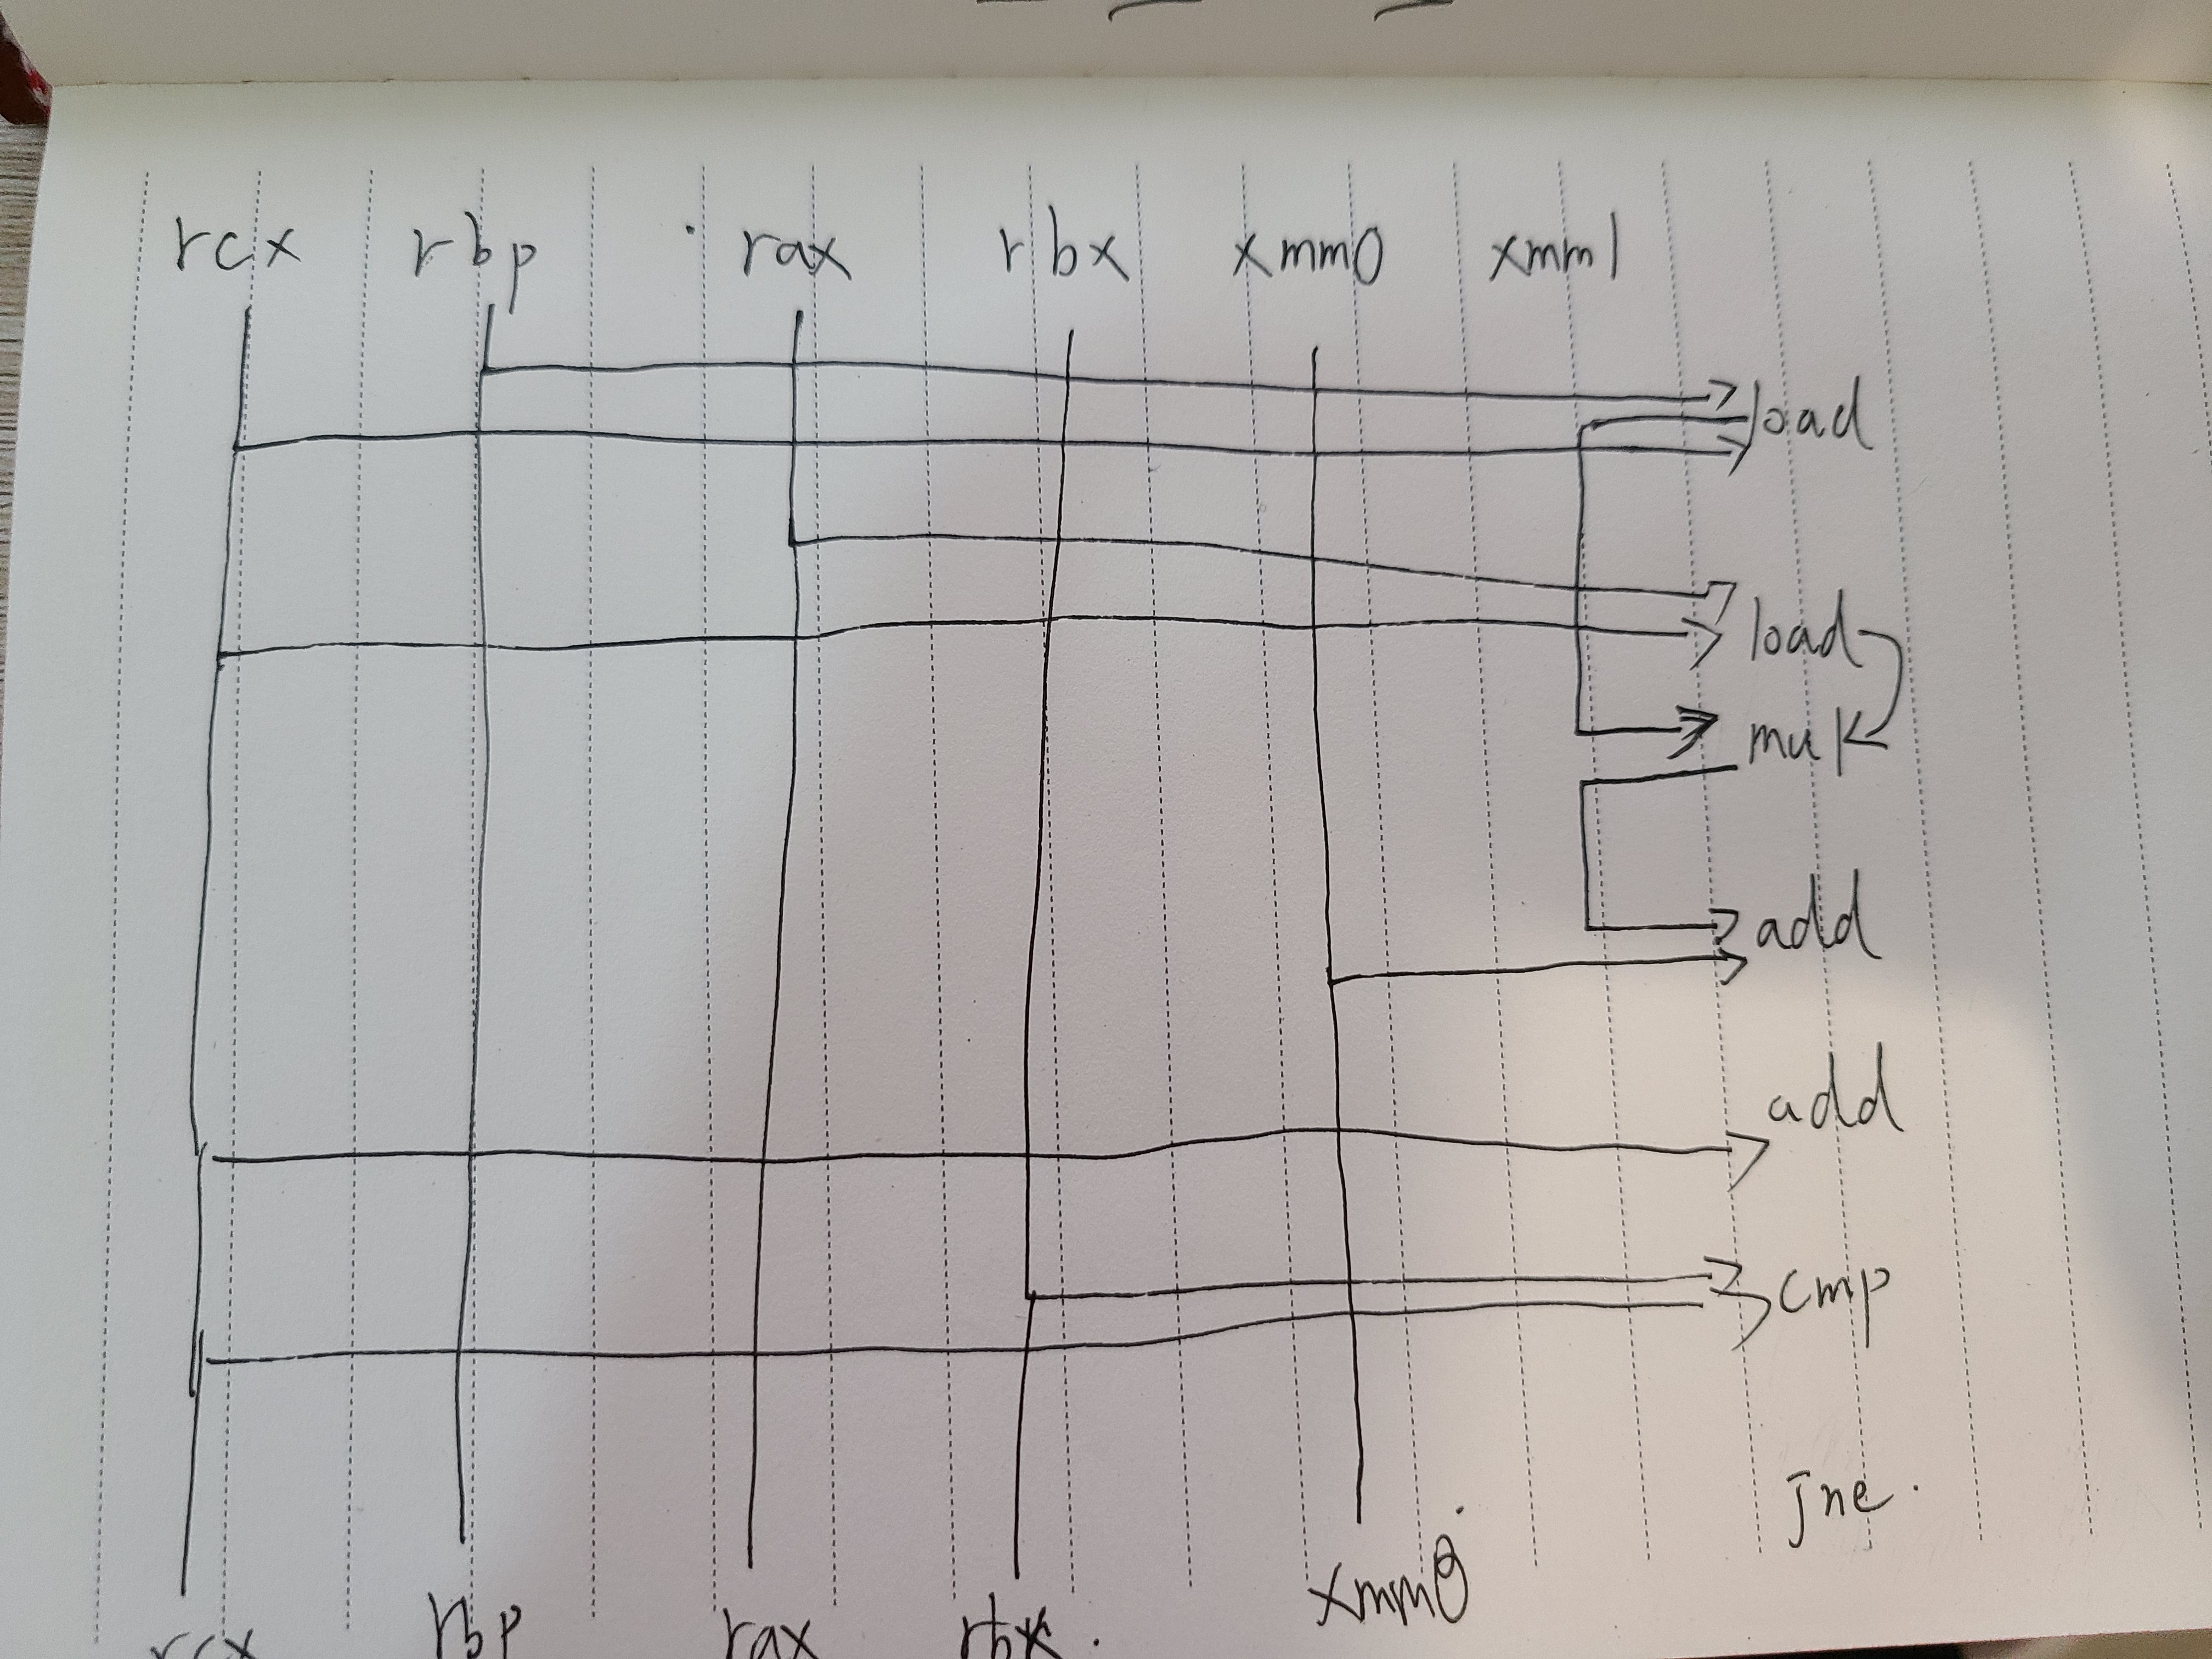 rcx rbp rax rbx xmm0 xmm1
load
load
mul
add
add
cmp
jne.
rcx rbp rax rbx. xmm0.